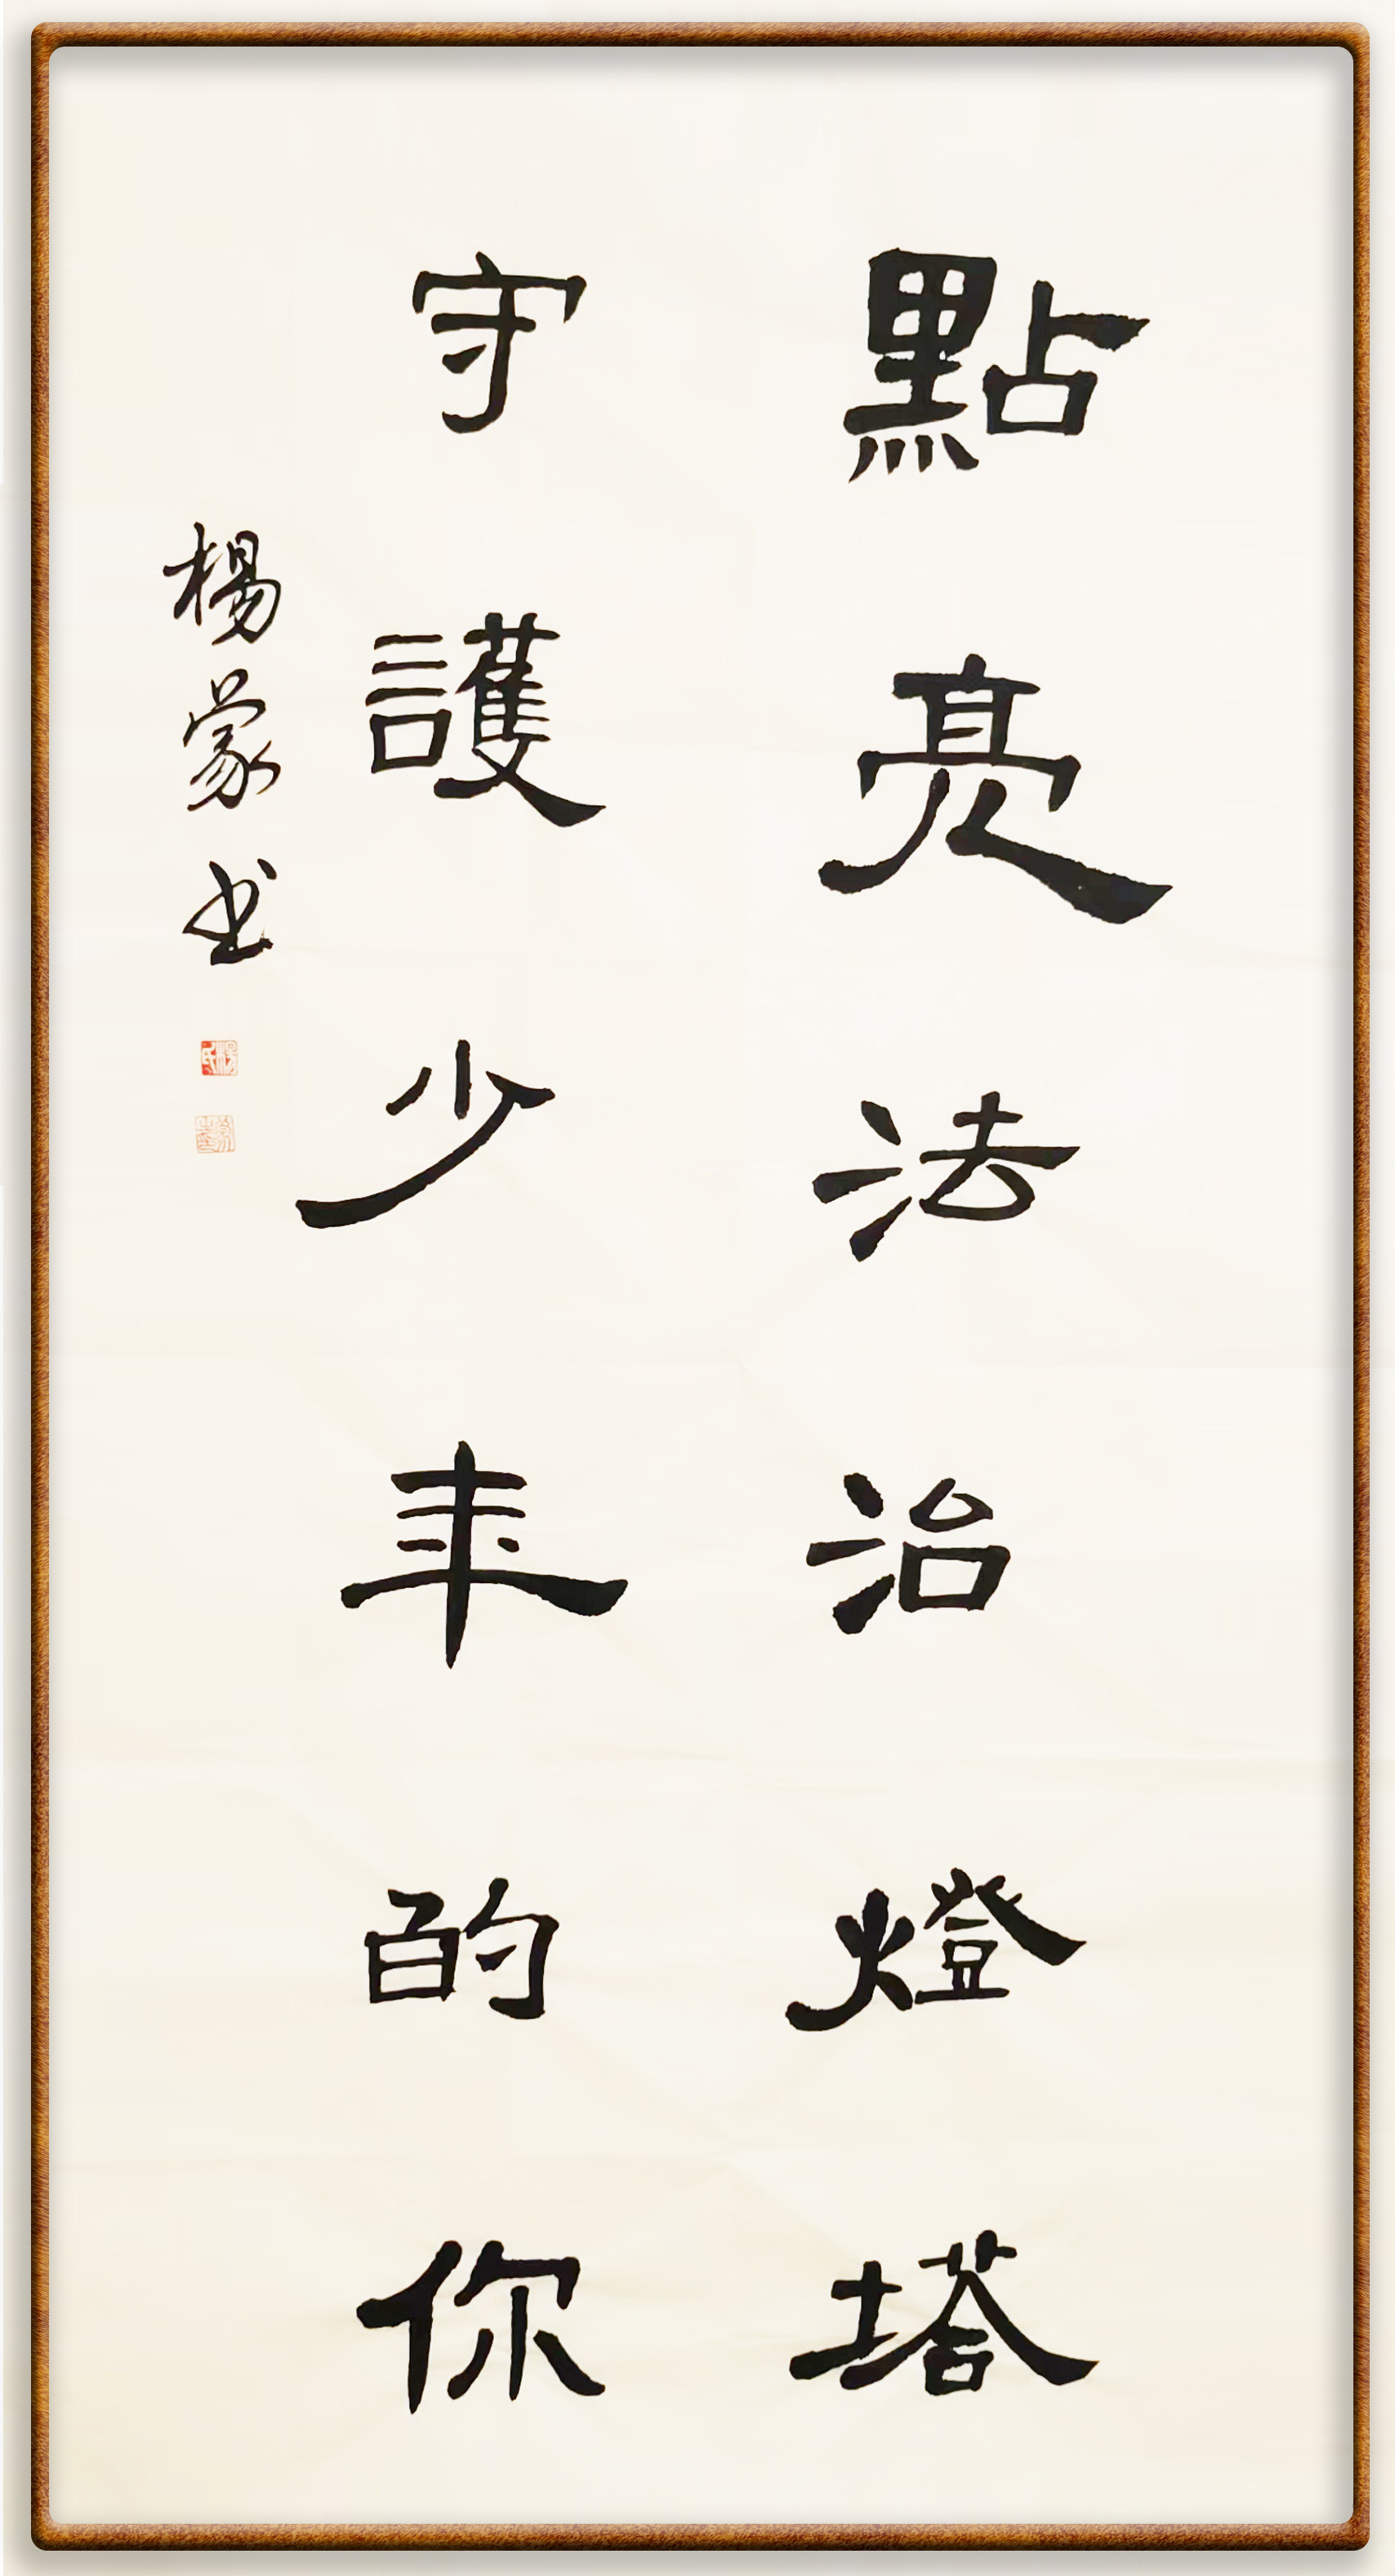 點亮法治燈塔
守護少年的你
楊蒙书